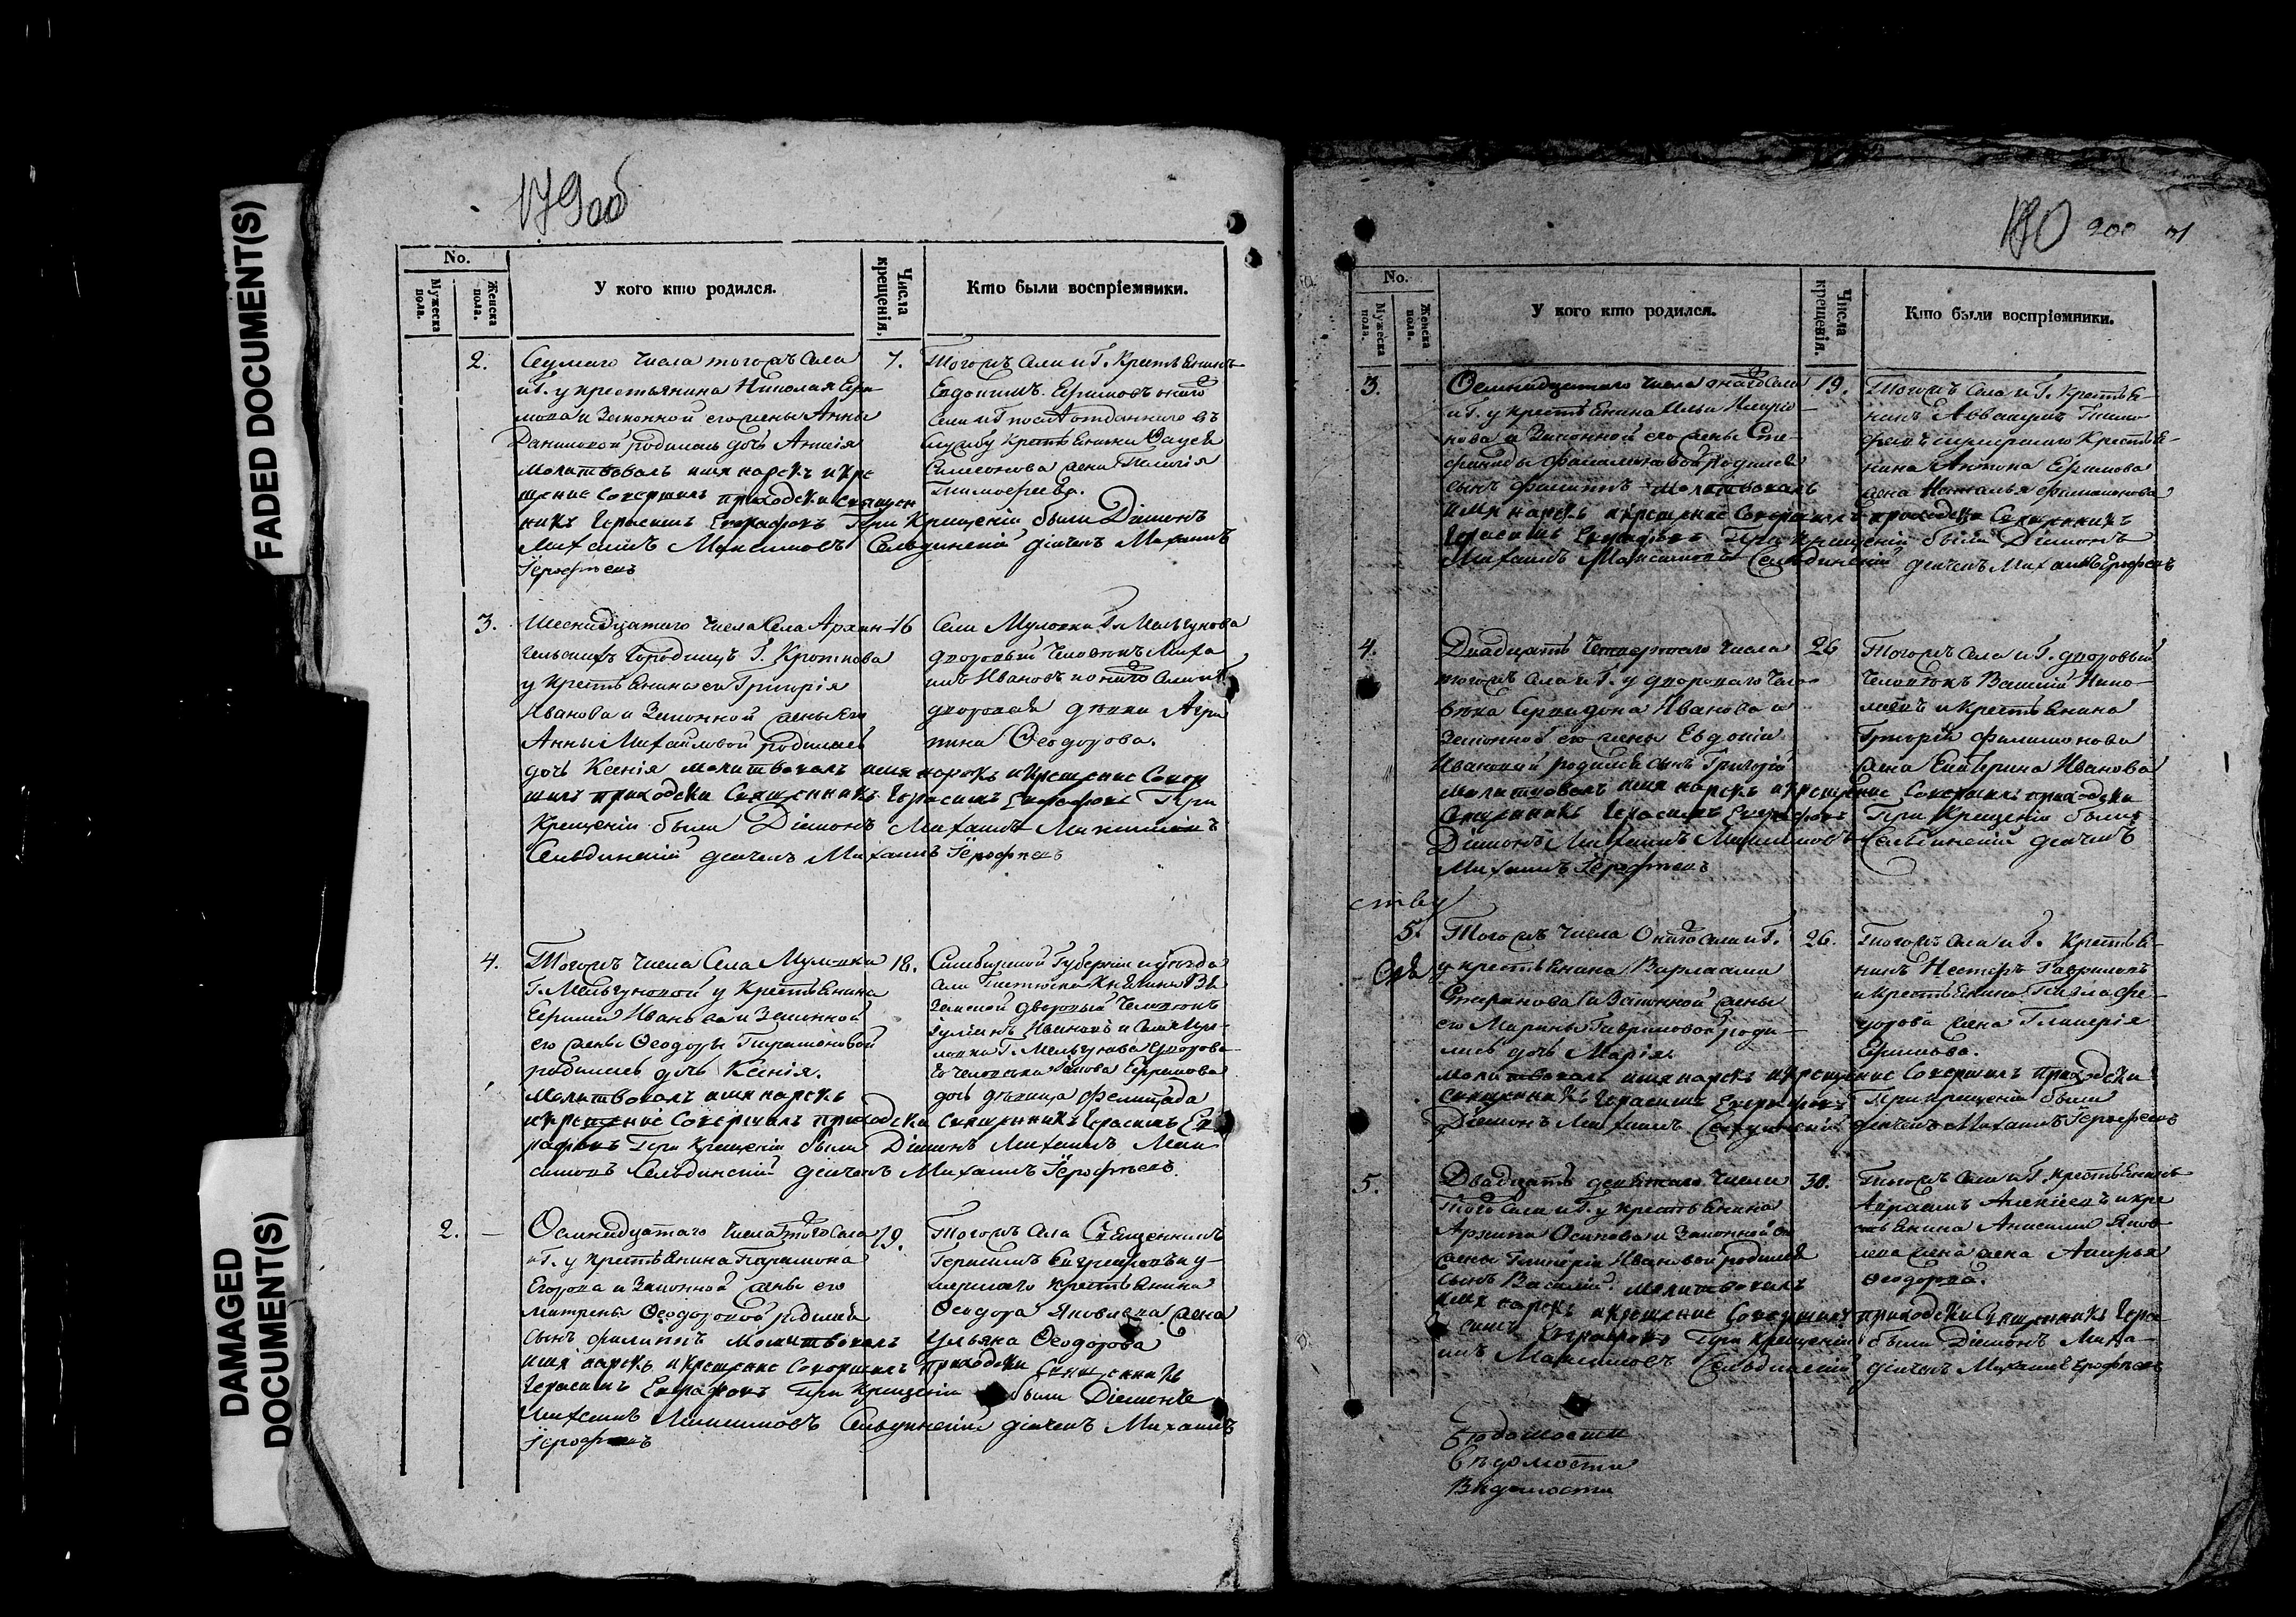 FADED DOCUMENT(S)
DAMAGED DOCUMENT(S)
179об
No.
Мужеска пола.
Женска пола.
У кого кто родился.
Числа крещенія,
Кто были воспріемники.
2.
Седмаго числа тогожъ Села
и Г. у крестьянина Николая Ефи-
мова и Законной его жены Анны
Даниловой родилась дочь Анисія
молитвовалъ имя нарекъ и кре
щеніе совершилъ приходски священ
никъ Герасимъ Евграфовъ При Крещеніи были Діаконъ
Михаилъ Максимовъ Сельдинскій дьячекъ Михаилъ
Іерофеевъ
7.
Тогожъ Села и Г. Крестьянинъ
Евдокимъ Ефимовъ онаго
Села и Г. после отданнаго въ
Службу Крестьянина
Симеонова жена Пелагія
Тимофеева.
3.
Шеснадцатаго числа Села Архан-
гельскихъ Городищъ Г. Кроткова
у Крестьянина его Григорія
Иванова и Законной жены Его
Анны Михайловой родилась
дочь Ксенія молитвовалъ имя нарекъ и Крещеніе Совер
шилъ приходски Священникъ Герасимъ Евграфовъ При
Крещеніи были Діаконъ Михаилъ Максимовъ
Сельдинскій дьячекъ Михаилъ Іерофеевъ
16
Села Муловки Г. Мельгунова
дворовый Человекъ Миха
илъ Ивановъ и онаго Села и Г.
дворовая девка Агри
пина Феодорова.
4.
Тогожъ числа Села Муловки
Г. Мельгуновой у Крестьянина
Ефима Иванова и Законной
его жены Феодоры Парамоновой
родилась дочь Ксенія.
молитвовалъ имя нарекъ
и крещеніе Совершилъ приходски священникъ Герасимъ Ев
графовъ При Крещеніи были Діаконъ Михаилъ Мак
симовъ Сельдинскій дьячекъ Михаилъ Іерофеевъ.
18.
Симбирской Губерніи и уезда
села
земской дворовый Человекъ
Іуліанъ Ивановъ и Села Му-
ловки Г. Мельгунова дворова
го человека Ефремова
дочь девица Фелицада
2.
Осмнадцатаго числа того Села
и Г. у Крестьянина Парамона
Егорова и Законной жены его
Матрены Феодоровой родился
сынъ Филиппъ молитвовалъ
имя нарекъ и Крещеніе Совершилъ приходски Священникъ
Герасимъ Евграфовъ При Крещеніи были Діаконъ
Михаилъ Максимовъ Сельдинскій дьячекъ Михаилъ
Іерофеевъ
19.
Тогожъ Села Священникъ
Герасимъ Евграфовъ и у-
мершаго Крестьянина
Феодора Яковлева жена
Ульяна Феодорова
180
200
No.
Мужеска пола.
Женска пола.
У кого кто родился.
Числа крещенія.
Кто были воспріемники.
3.
Осмнадцатаго числа онаго Села
и Г. у крестьянина Ильи Иларіо-
нова и Законной его жены Сте-
фаниды Филимоновой родился
сынъ Филиппъ молитвовалъ
имя нарекъ и крещеніе Совершилъ приходски Священникъ
Герасимъ Евграфовъ При Крещеніи были Діаконъ
Михаилъ Максимовъ Сельдинскій дьячекъ Михаилъ Іерофеевъ
19.
Тогожъ Села и Г. Крестья-
нинъ Аввакумъ Тимо-
феевъ и умершаго Крестья-
нина Антона Ефимова
жена Наталья Филимонова
4.
Двадцать Четвертаго числа
тогожъ Села и Г. у двороваго чело-
века Спиридона Иванова и
Законной его жены Евдокіи
Ивановой родился сынъ Григорій
молитвовалъ имя нарекъ и крещеніе Совершилъ приходски
Священникъ Герасимъ Евграфовъ При Крещеніи были
Діаконъ Михаилъ Максимовъ Сельдинскій дьячекъ
Михаилъ Іерофеевъ
26
Тогожъ Села и Г. дворовый
Человекъ Василій Нико-
лаевъ и Крестьянина
Григорія Филимонова
жена Екатерина Иванова
ству
5.
Тогожъ числа Онаго села и Г.
у крестьянина Варлаама
Степанова и Законной жены
его Марины Гавриловой роди-
лась дочь Марія.
молитвовалъ имя нарекъ и крещеніе Совершилъ приходски
священникъ Герасимъ Евграфовъ При крещеніи были
Діаконъ Михаилъ дьячекъ Михаилъ Іерофеевъ
26.
Тогожъ Села и Г. Крестья-
нинъ Нестеръ Гавриловъ
и Крестьянина Павла Фе-
дорова жена Гликерія
Ефимова.
5.
Двадцать девятаго числа
того Села и Г. у крестьянина
Архипа Осипова и Законной его
жены Гликеріи Ивановой родился
сынъ Василій. молитвовалъ
имя нарекъ и крещеніе Совершилъ приходски Священникъ Гера-
симъ Евграфовъ При Крещеніи были Діаконъ Миха-
илъ Максимовъ Сельдинскій дьячекъ Михаилъ Ерофеевъ
30.
Тогожъ Села и Г. Крестьянинъ
Абрамъ Алексеевъ и кре
стьянина Анисима Яков
лева жена Дарья
Феодорова.
ведомости
Ведомости